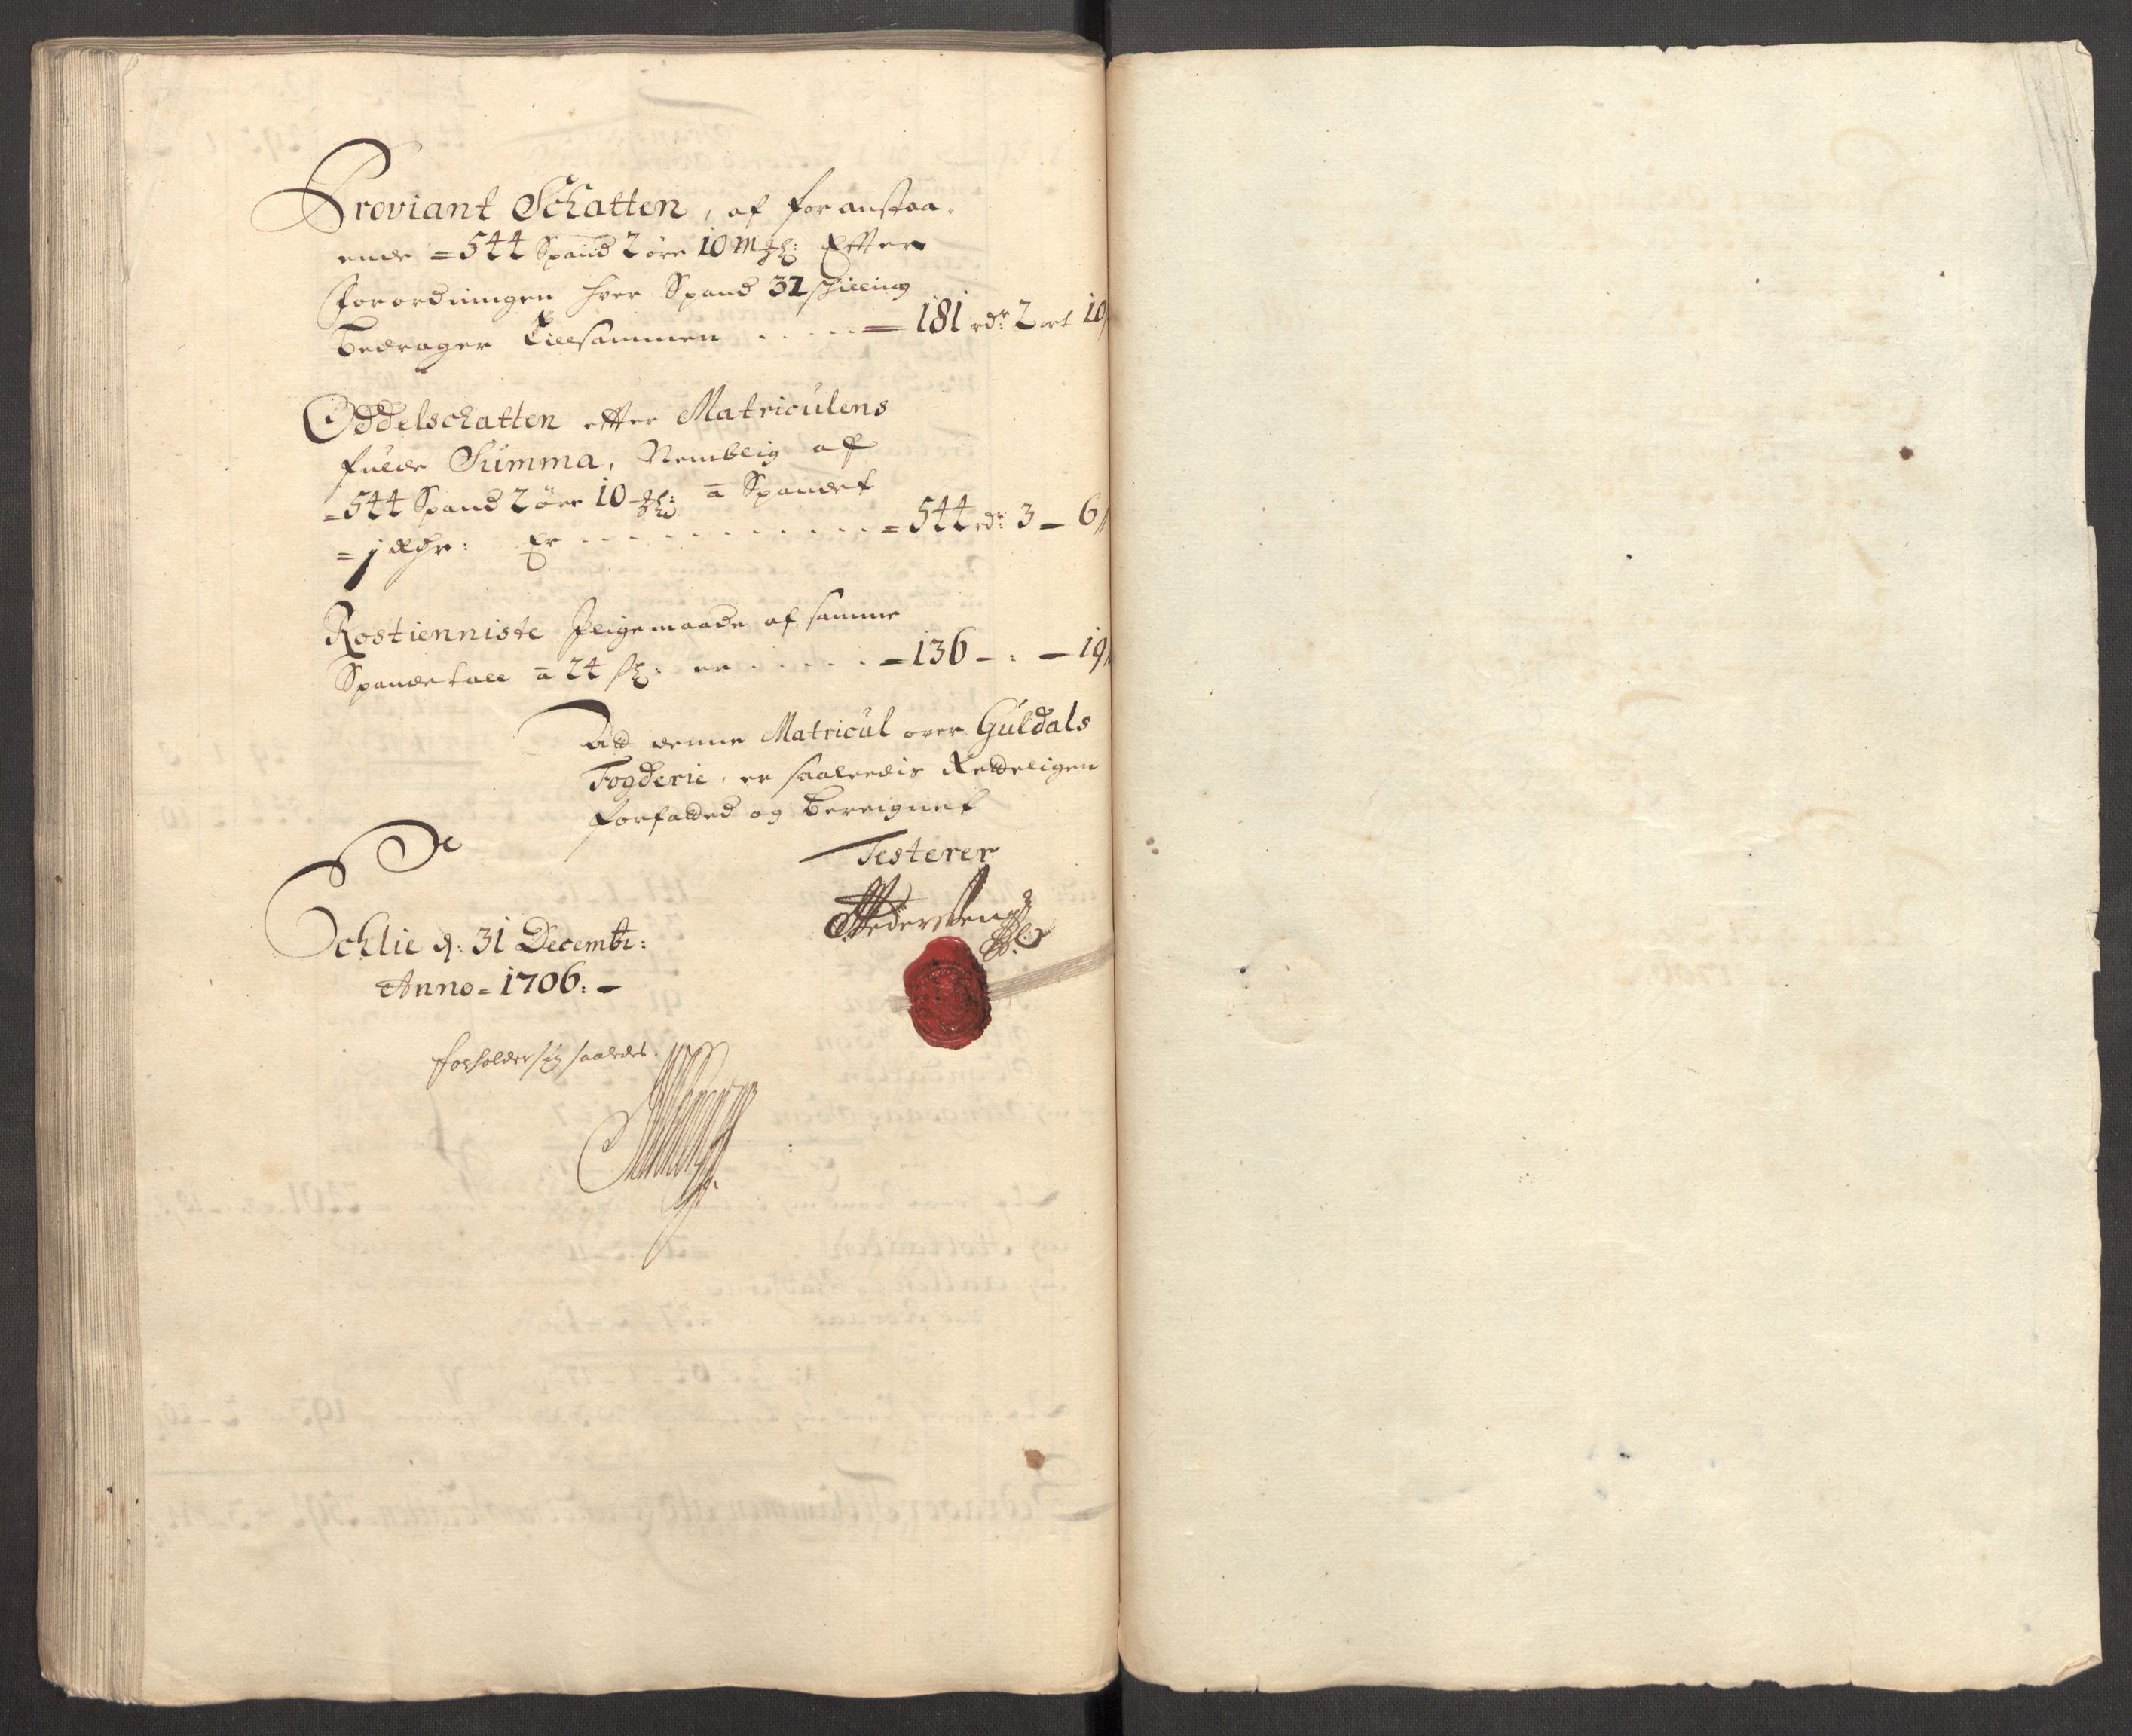 Proviant Schatten, af foranstaa-
ende = 544 Spand 2 øre 10 Mkl: Efter
Forordningen hver Spand 32 schilling
bedrager tillsammen . . . . = 181 rdr 2 ort 10
Oddelschatten efter Matriculens
fulde Summa, Nemblig af
= 544 Spand 2 øre 10 mkl: a Spandet
= 1 Rdr: Er . . . . . . . . . = 544 rdr: 3 - 6
Rostienniste Jligemaade af samme
Spandetall a 24 sk: er . . . . . - 136 - : - 19
At denne Matricul over Guldals
Fogderie, er saaledis Retteligen
forfatted og bereignet
Testerer
Schlie d: 31 Decembr:
Anno = 1706: -
forholder sig saaledes.